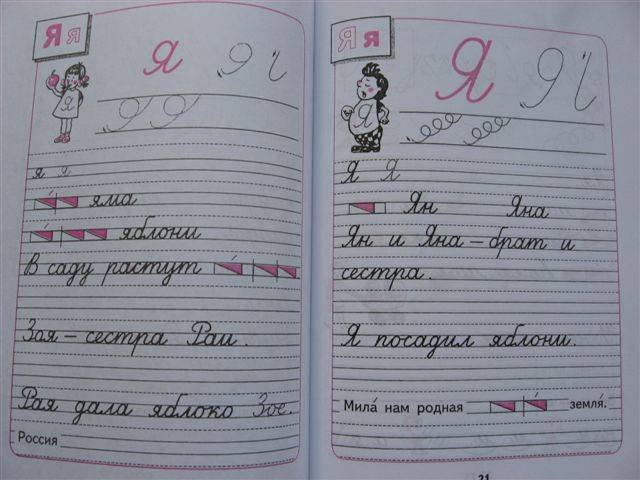 Я я
я Я Я
Я
я я
яма
яблони
В саду растут
Зоя – сестра Раи.
Рая дала яблоко Зое.
Россия
Я я
Я Я
Я
Я Я
Ян Яна
Ян и Яна – брат и
сестра.
Я посадил яблони.
Мила́ нам родная земля́.
21